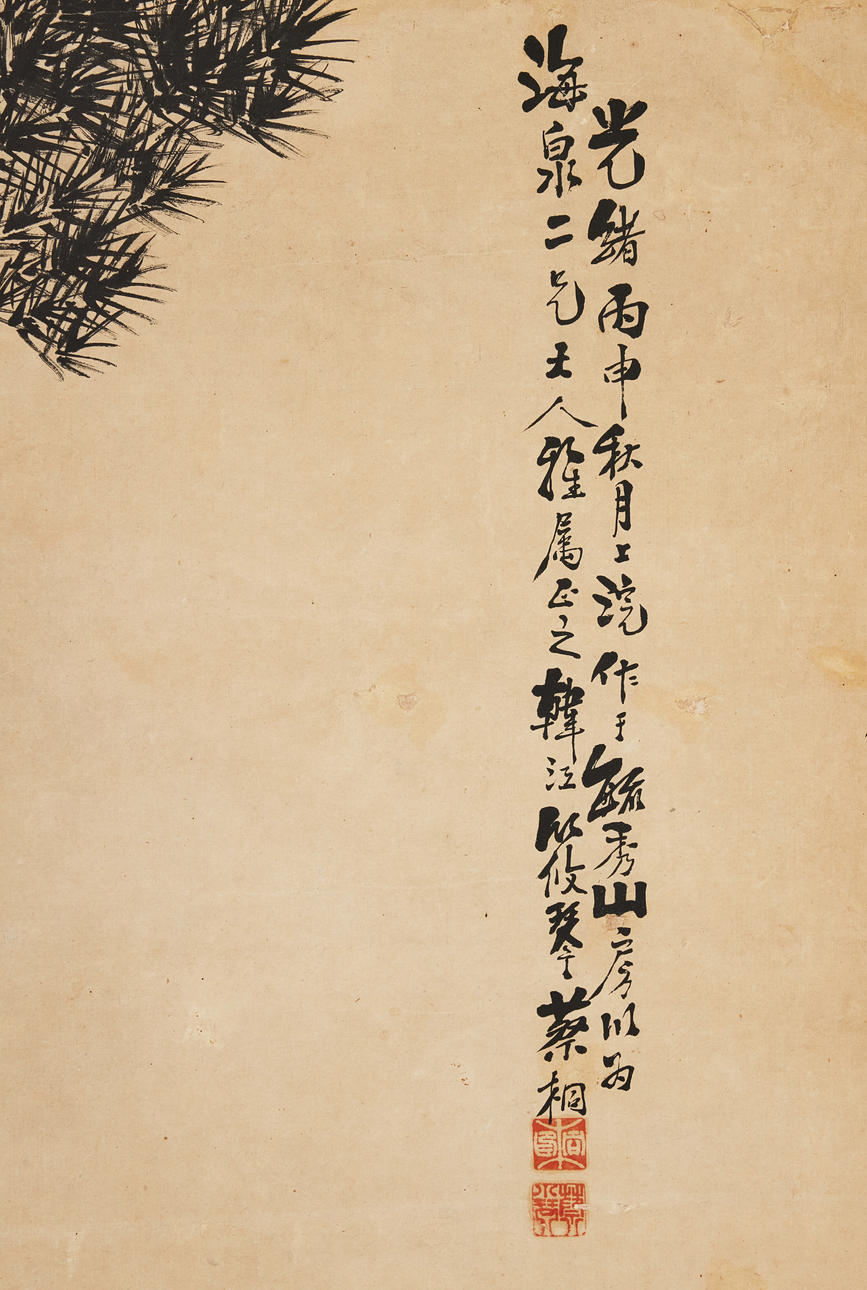 光緒丙申秋月上浣作于毓秀山房以为
海泉二兄大人雅属正之韓江攸琴蔡桐